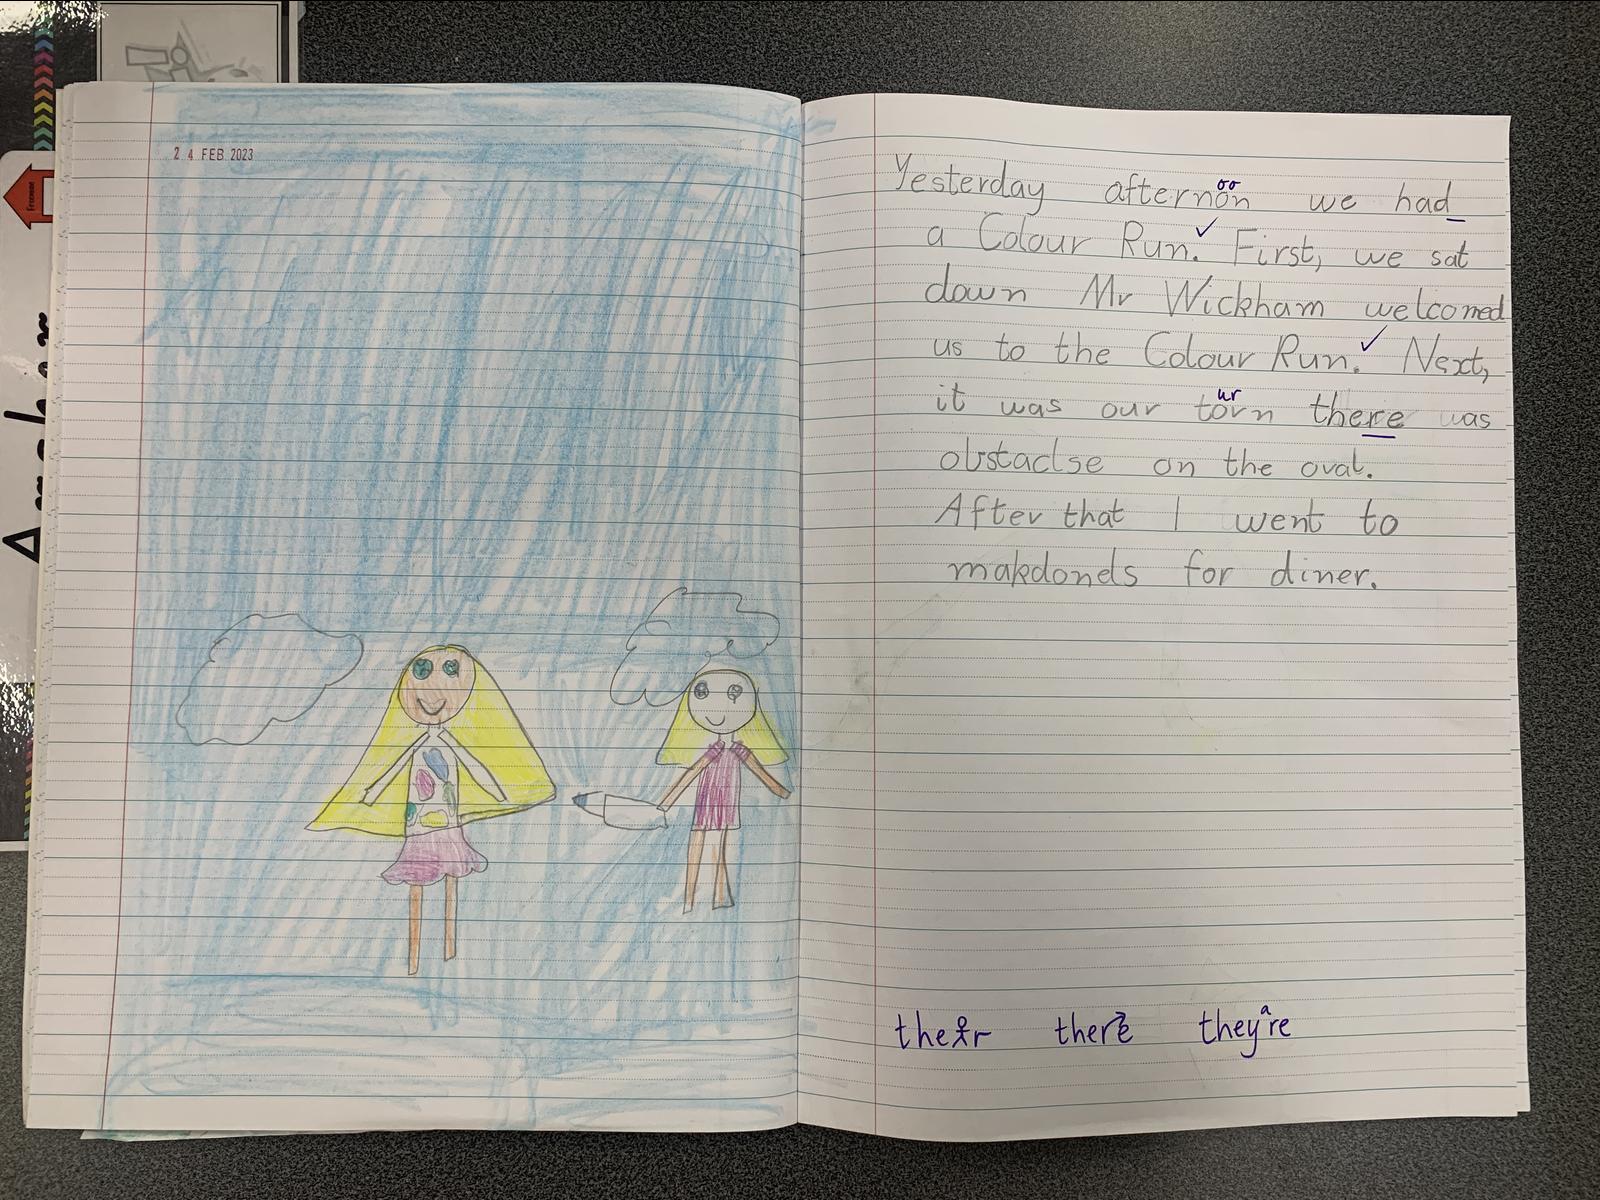 2 4 FEB 2023
Yesterday afternon we had
oo
a Colour Run. First, we sat
down Mr Wickham welcomed
us to the Colour Run. Next,
it was our torn there was
ur
obstaclse on the oval.
After that I went to
makdonels for diner.
their there they're
a